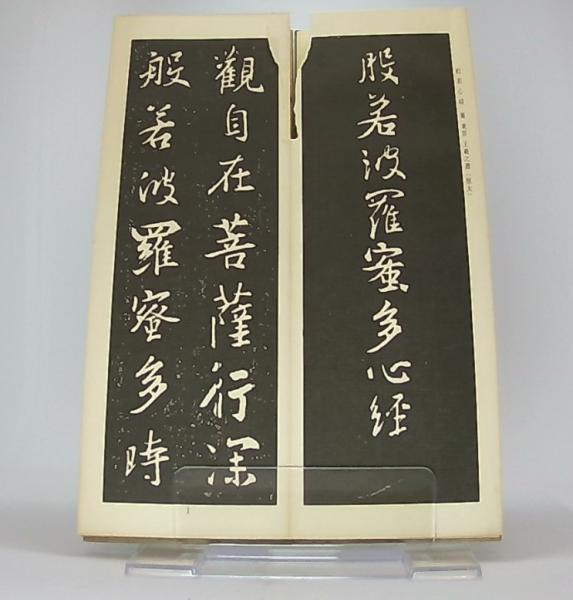 般若心経 集王聖教 王羲之書(拡大)
般若波羅蜜多心経
觀自在菩薩行深
般若波羅蜜多時
1